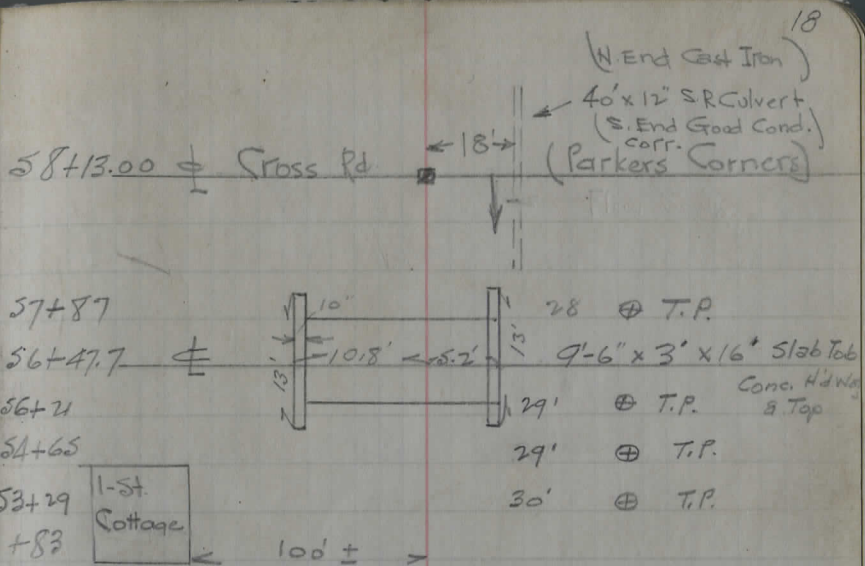 18
(N. End Cast Iron)
40' x 12" S.R. Culvert
(S. End Good Cond.)
corr.
18'
58+13.00 ℄ Cross Rd (Parkers Corners)
57+87 10" 28 ⊕ T.P.
56+47.7 ℄ 13' 10.8' 5.2' 13' 9'-6" x 3' x 16'
Slab
Conc. H'dWg
& Top
56+21 29' ⊕ T.P.
54+65 29' ⊕ T.P.
53+29 1-St. 30' ⊕ T.P.
Cottage
+83 100' ±